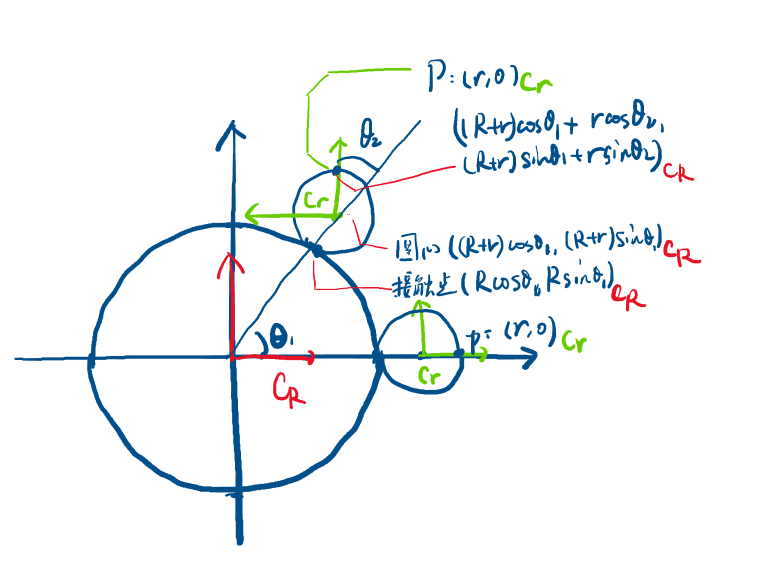 P:(r,0)Cr
((R+r)cosθ₁+rcosθ₂,
(R+r)sinθ₁+rsinθ₂)CR
θ₂
Cr
圆心((R+r)cosθ₁,(R+r)sinθ₁)CR
接触点(Rcosθ₁,Rsinθ₁)CR
θ₁
P=(r,0)Cr
Cr
CR